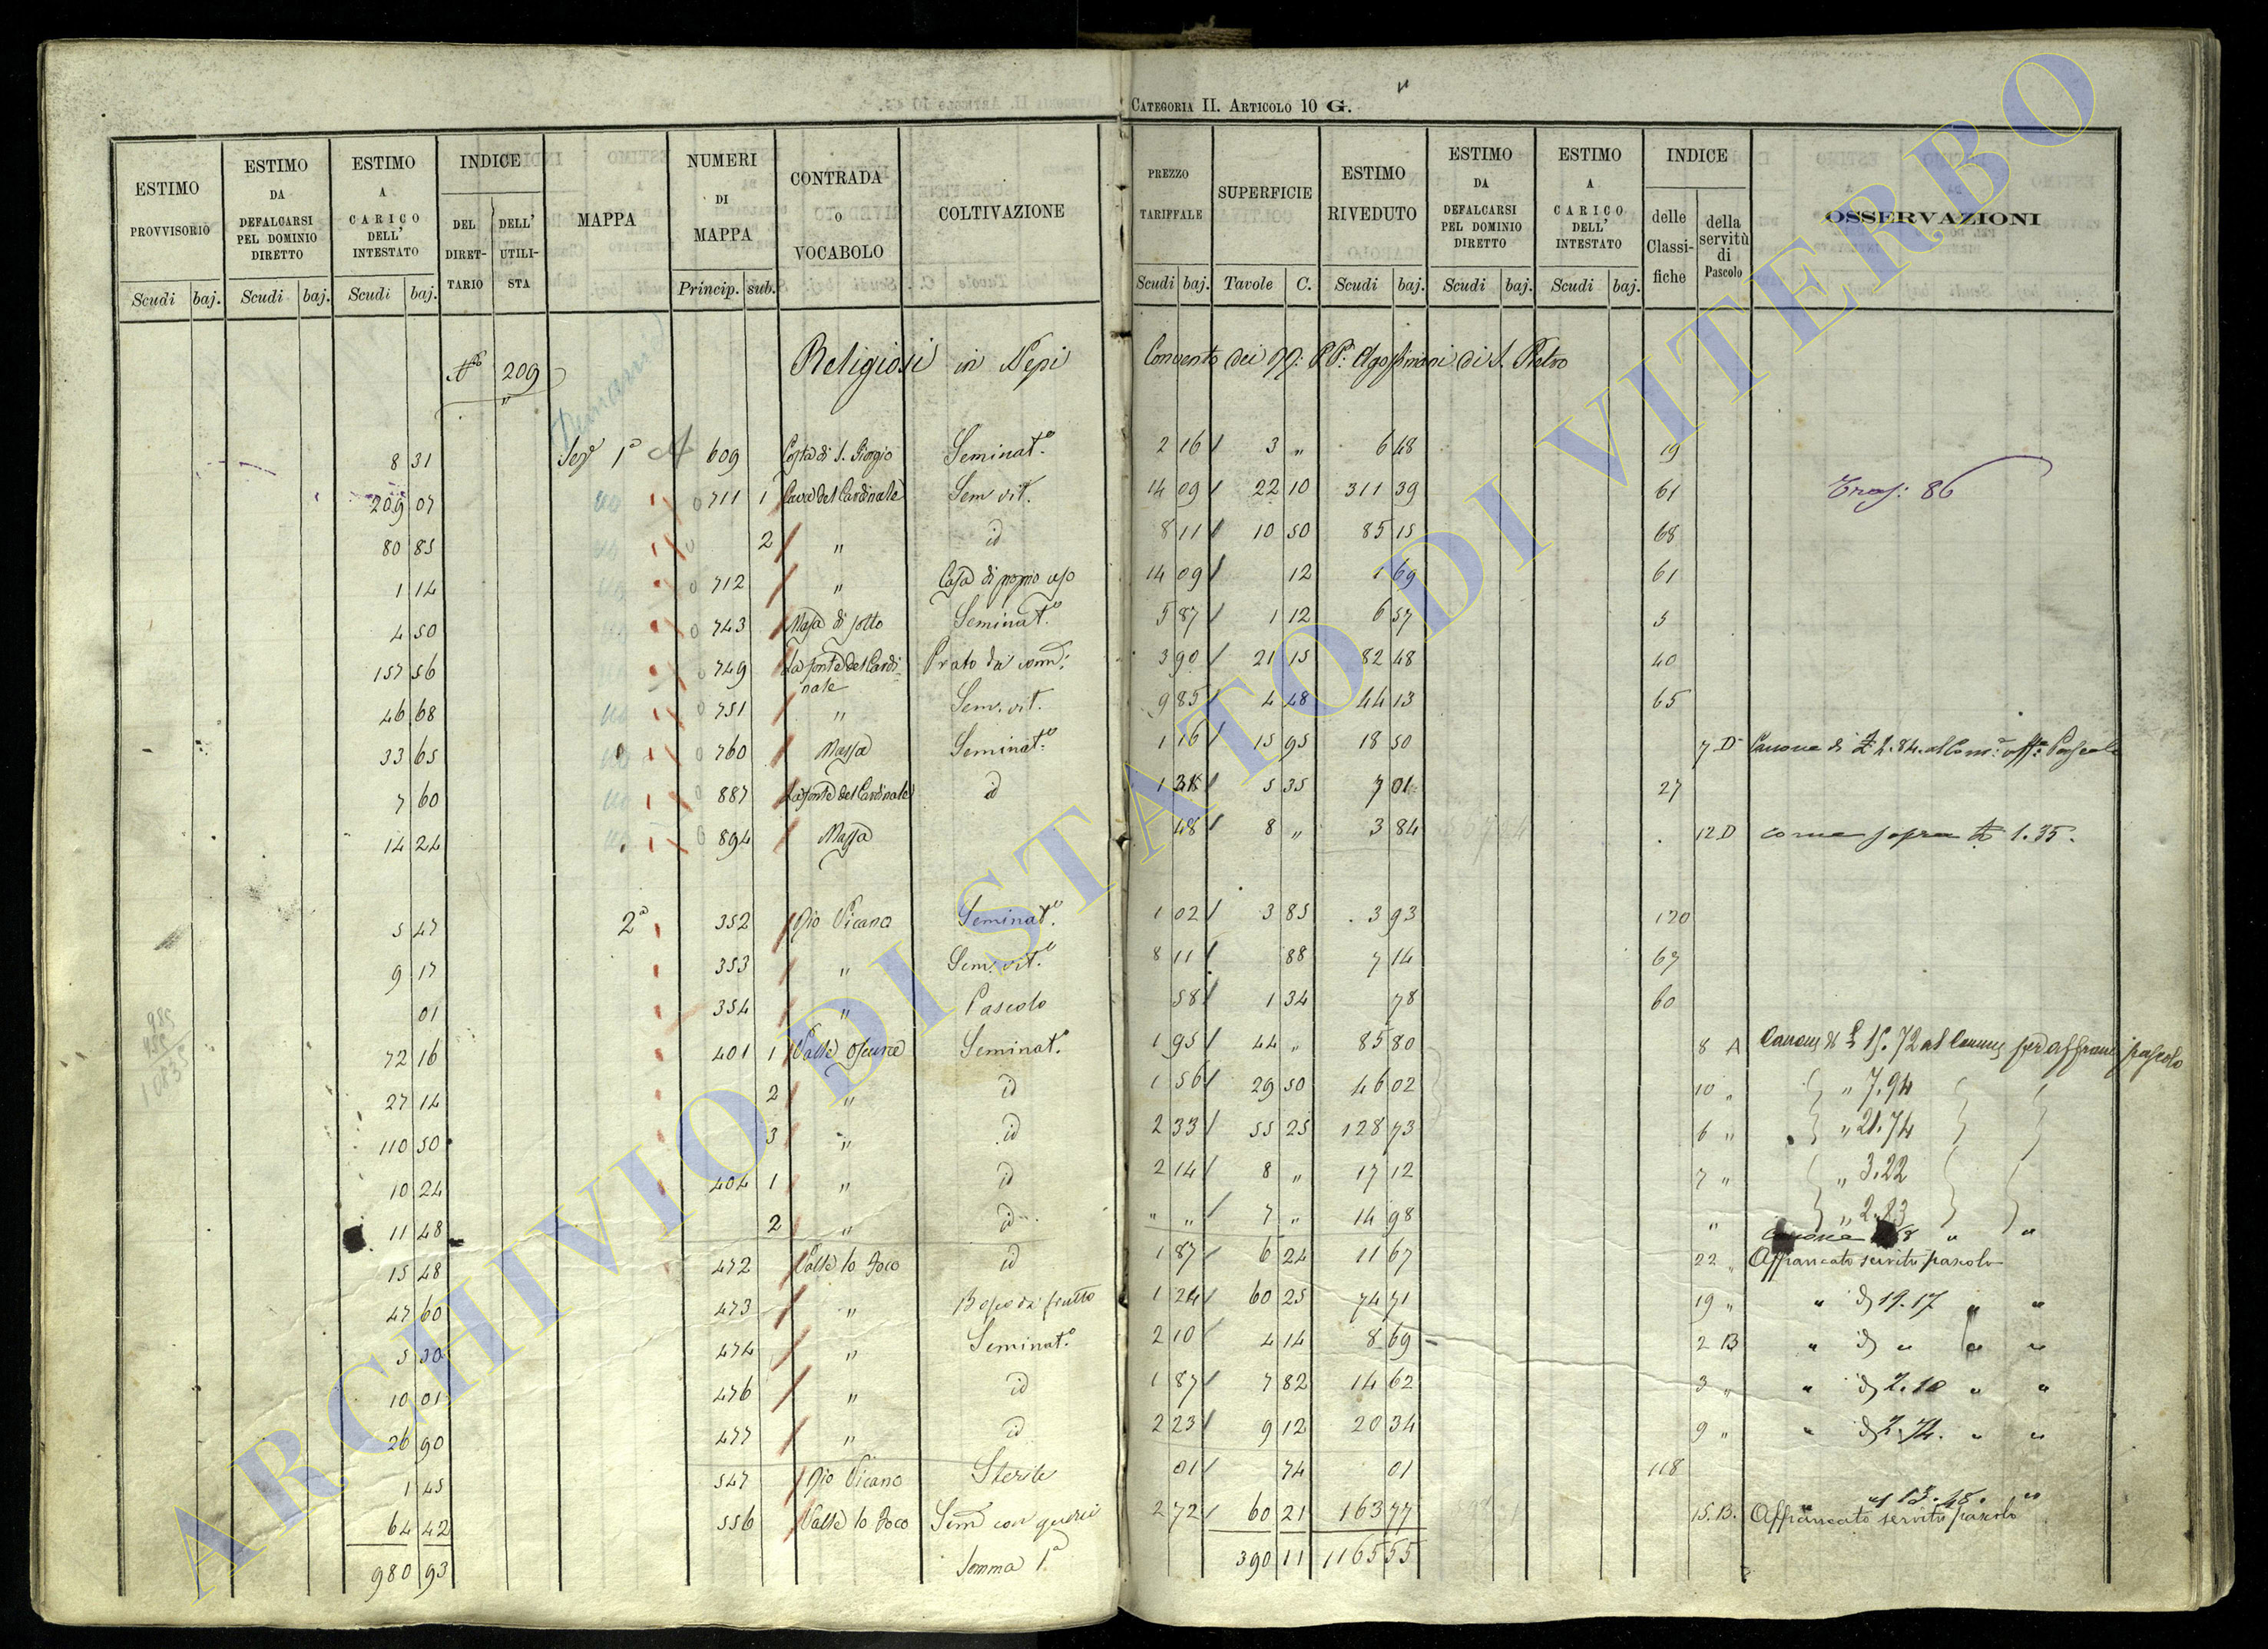 CATEGORIA II. ARTICOLO 10 G.
ESTIMO PROVVISORIO
Scudi baj.
ESTIMO DA DEFALCARSI PEL DOMINIO DIRETTO
Scudi baj.
ESTIMO A CARICO DELL' INTESTATO
Scudi baj.
INDICE
DEL DIRETTARIO
DELL' UTILISTA
MAPPA
NUMERI DI MAPPA
Princip. sub.
CONTRADA O VOCABOLO
COLTIVAZIONE
PREZZO TARIFFALE
Scudi baj.
SUPERFICIE
Tavole C.
ESTIMO RIVEDUTO
Scudi baj.
ESTIMO DA DEFALCARSI PEL DOMINIO DIRETTO
Scudi baj.
ESTIMO A CARICO DELL' INTESTATO
Scudi baj.
INDICE
delle Classifiche
della servitù di Pascolo
OSSERVAZIONI
209 Religiosi in Nepi Convento dei PP. Agostiniani di S. Pietro
8 31 Sez 1a 609 Costa di S. Giorgio Seminato 2 16 3 " 6 48 19
209 07 711 1 Cava del Cardinale Sem vit. 14 09 22 10 311 39 61 Tras: 86
80 85 2 " id 8 11 10 50 85 15 68
1 14 712 " Casa di proprio uso 14 09 12 1 69 61
4 50 743 Massa di sotto Seminato 5 87 1 12 6 57 5
157 56 749 La fonte del Cardinale Prato da 3 90 21 15 82 48 40
46 68 751 " Sem. vit. 9 85 4 48 44 13 65
33 65 760 Massa Seminato 1 16 15 95 18 50 7 D Canone di
7 60 887 La fonte del Cardinale id 1 31 5 35 7 01 27
14 24 894 Massa 48 8 " 3 84 12 D come sopra 1.35.
5 47 2a 352 Rio Vicano Seminato 1 02 3 85 3 93 120
9 17 353 " Sem. vit. 8 11 88 7 14 67
01 354 " Pascolo 58 1 34 78 60
72 16 401 1 Valle Oscura Seminato 1 95 44 " 85 80 8 A Canone di 15.72 al pascolo
27 14 2 " id 1 56 29 50 46 02 10 " " 7.94
110 50 3 " id 2 33 55 25 128 73 6 " " 21.74
10 24 404 1 " id 2 14 8 " 17 12 7 " " 3.22
11 48 2 " id " " 7 " 14 98 " " 2.83
15 48 472 Valle lo Foco id 1 87 6 24 11 67 22 " Affrancato servitù pascolo
47 60 473 " Bosco da frutto 1 24 60 25 74 71 19 " " di 19.17 " "
5 30 474 " Seminato 2 10 4 14 8 69 2 B " di " " "
10 01 476 " id 1 87 7 82 14 62 3 " " di 2.10 " "
26 90 477 " id 2 23 9 12 20 34 9 " " di 2.74. " "
1 45 547 Rio Vicano Sterile 01 74 01 118
64 42 556 Valle lo Foco Sem con querci 2 72 60 21 163 77 15.B. Affrancato servitù pascolo
980 93 Somma 1a 390 11 1165 55
ARCHIVIO DI STATO DI VITERBO